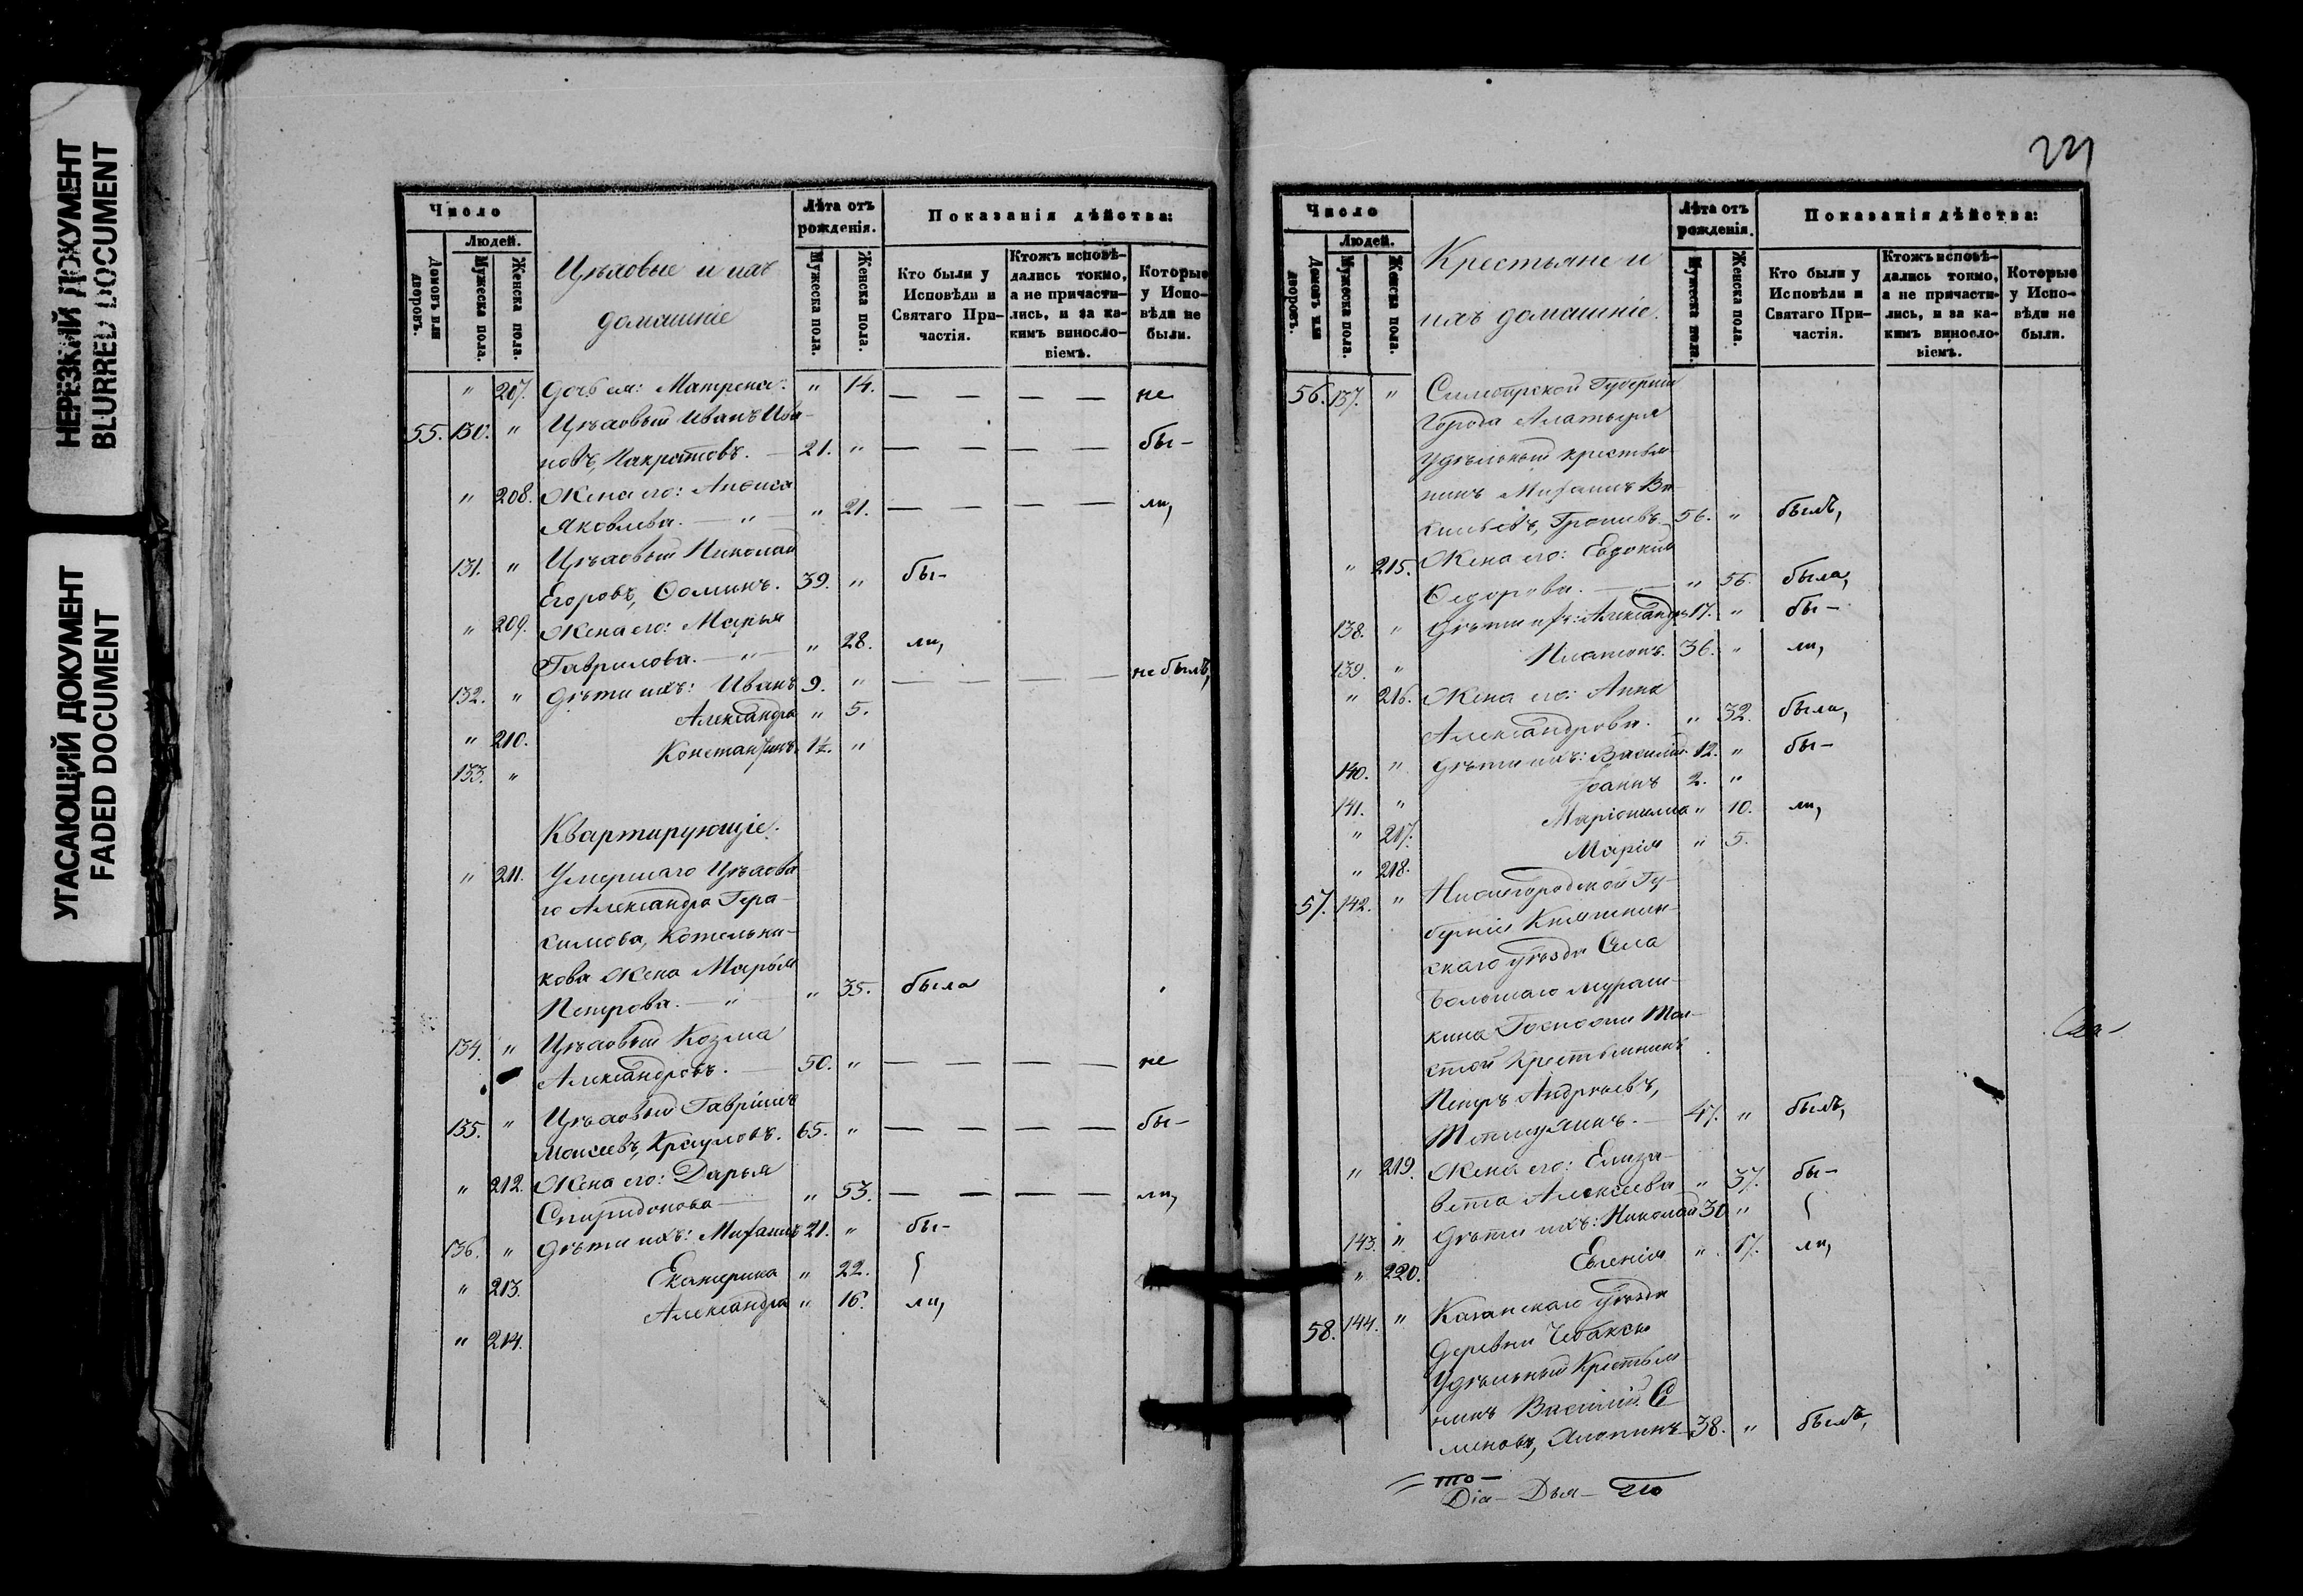 НЕРЕЗКИЙ ДОКУМЕНТ
BLURRED DOCUMENT
УГАСАЮЩИЙ ДОКУМЕНТ
FADED DOCUMENT
Число
Людей.
Домовъ или дворовъ.
Мужеска пола.
Женска пола.
Цѣховые и ихъ
домашніе
Лѣта отъ
рожденія.
Мужеска пола.
Женска пола.
Показанія дѣйства:
Кто были у
Исповѣди и
Святаго При-
частія.
Ктожъ исповѣ-
дались токмо,
а не причасти-
лись, и за ка-
кимъ винosло-
віемъ.
Которые
у Испо-
вѣди не
были.
" 207. Дочь ея: Матрена. " 14. — — — — не
55. 130. " Цѣховый Иванъ Ива-
новъ, Панкратовъ. — 21. " — — — — бы-
" 208. Жена его: Анѳиса
Яковлева. — " — " 21. — — — — ли,
131. " Цѣховый Николай
Егоровъ, Ѳоминъ. 39. " бы-
" 209. Жена его: Марья
Гаврилова. — " — " 28. ли,
132. " Дѣти ихъ: Иванъ 9. " — — — — не былъ,
" 210. Александра " 5.
133. " Константинъ. 1½. "
Квартирующіе.
" 211. Умершаго Цѣхова
го Александра Гера-
симова, Котельни-
кова Жена Марья
Петрова. — " — " 35. была
134. " Цѣховый Козма
Александровъ. — 50. " — — — — не
135. " Цѣховый Гавріилъ
Моисеевъ, Крауловъ. 65. " — — — — бы-
" 212. Жена его: Дарья
Спиридонова — " 53. — — — — ли,
136. " Дѣти ихъ: Михаилъ 21. " бы-
" 213. Екатерина " 22. {
" 214. Александра " 16. ли,
221
Число
Людей.
Домовъ или дворовъ.
Мужеска пола.
Женска пола.
Крестьяне и
ихъ домашніе.
Лѣта отъ
рожденія.
Мужеска пола.
Женска пола.
Показанія дѣйства:
Кто были у
Исповѣди и
Святаго При-
частія.
Ктожъ исповѣ-
дались токмо,
а не причасти-
лись, и за ка-
кимъ винosло-
віемъ.
Которые
у Испо-
вѣди не
были.
56. 137. " Симбирской Губерніи
Города Алатыря
Удѣльный крестья-
нинъ Михаилъ Ва-
сильевъ, 56. " былъ,
" 215. Жена его: Евдокія
Ѳедорова. — " 56. была,
138. " Дѣти ихъ: Александръ 17. " бы-
139. " Платонъ. 36. " ли,
" 216. Жена его: Анна
Александрова. " 32. была,
140. " Дѣти ихъ: Василій. 12. " бы-
141. " Іоаннъ 2. "
" 217. Маріонилла " 10. ли,
" 218. Марія " 5.
57. 142. " Нижегородской Гу-
берніи Княгинин-
скаго уѣзда Села
Большаго Мураш-
кина Госпожи Тол-
стой Крестьянинъ
Петръ Андреевъ,
47. " былъ,
" 219. Жена его: Елиза-
вета Алексеева " 37. бы-
143. " Дѣти ихъ: Николай 30. " {
" 220. Евгенія " 17. ли,
58. 144. " Казанскаго уѣзда
Деревни Чебаксы
Удѣльный Крестья
нинъ Василій Се
меновъ, 38. " былъ,
то-
Dіа- Дья-